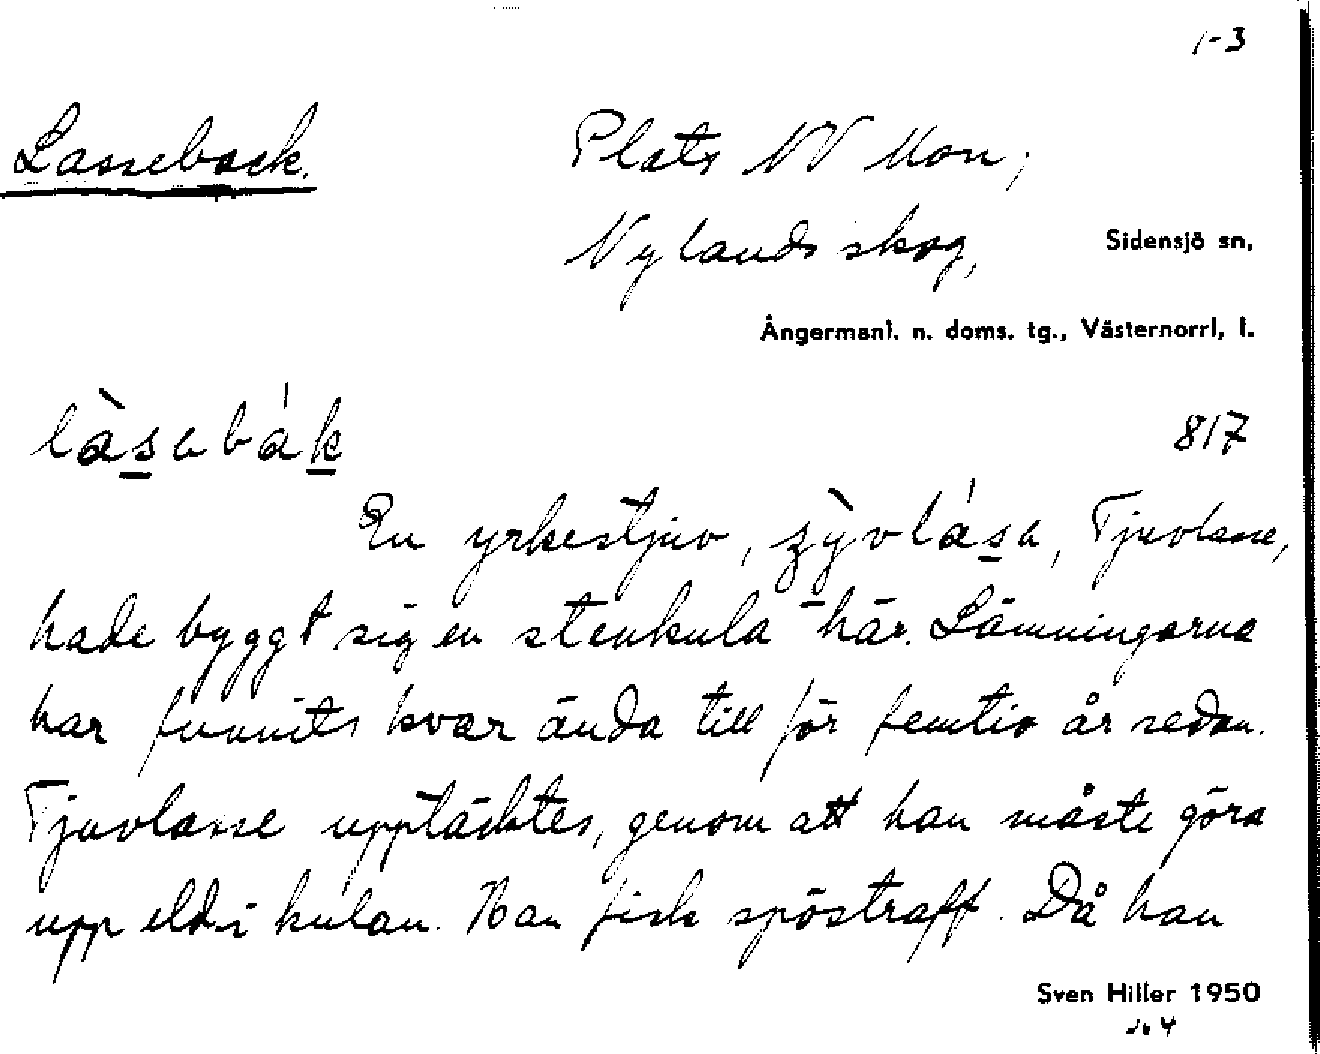 1-3
Lasseback.
Plats NV Mon,
Nylands skog,
Sidensjö sn.
Ångermanl. n. doms. tg., Västernorrl. l.
làsabák
817
En yrkestjuv, ʒỳvlása, Tjuvlasse,
hade byggt sig en stenkula här. Lämningarna
har funnits kvar ända till för femtio år sedan.
Tjuvlasse upptäcktes, genom att han måste göra
upp eld i kulan. Han fick spöstraff. Då han
Sven Hiller 1950